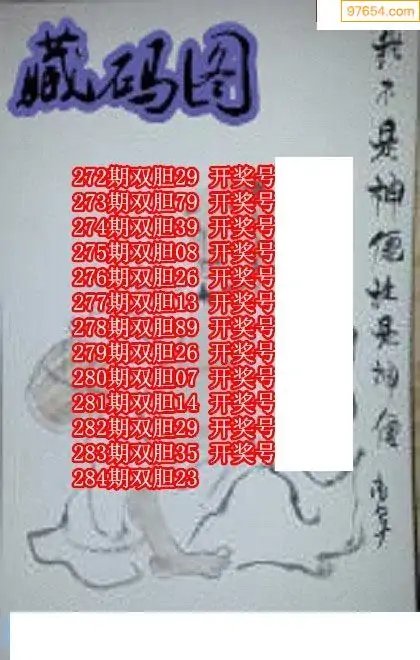 97654.com
藏码图
272期双胆29 开奖号
273期双胆79 开奖号
274期双胆39 开奖号
275期双胆08 开奖号
276期双胆26 开奖号
277期双胆13 开奖号
278期双胆89 开奖号
279期双胆26 开奖号
280期双胆07 开奖号
281期双胆14 开奖号
282期双胆29 开奖号
283期双胆35 开奖号
284期双胆23
不是神仙胜是神仙